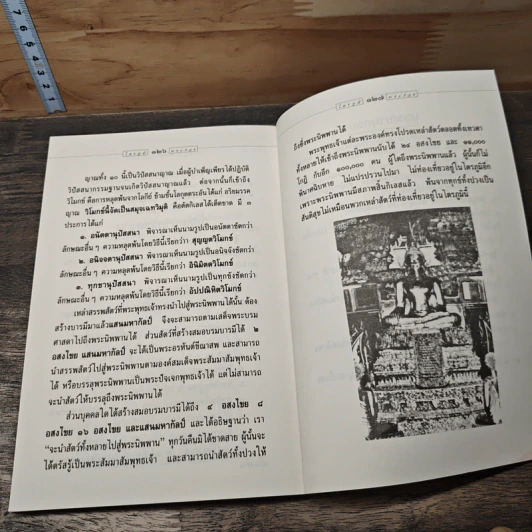 ไตรภูมิ ๑๒๖ พระร่วง
ญาณทั้ง ๑๐ นี้เป็นวิปัสสนาญาณ เมื่อผู้บำเพ็ญเพียรได้ปฏิบัติ
วิปัสสนากรรมฐานจนเกิดวิปัสสนาญาณแล้ว ต่อจากนั้นก็เข้าถึง
วิโมกข์ คือการหลุดพ้นจากโลกีย์ ข้ามขั้นโคตรระอัน ได้แก่ อริยมรรค
ญาณ วิโมกข์นี้จัดเป็นสมุจเฉทวิมุติ คือตัดกิเลสได้เด็ดขาด มี ๓
ประการได้แก่
๑. อนัตตานุปัสสนา พิจารณาเห็นนามรูปเป็นอนัตตาชัดกว่า
ลักษณะอื่น ๆ ความหลุดพ้นโดยวิธีนี้เรียกว่า สุญญตวิโมกข์
๒. อนิจจตานุปัสสนา พิจารณาเห็นนามรูปเป็นอนิจจังชัดกว่า
ลักษณะอื่น ๆ ความหลุดพ้นโดยวิธีนี้เรียกว่า อนิมิตตวิโมกข์
๓. ทุกขานุปัสสนา พิจารณาเห็นนามรูปเป็นทุกขังชัดกว่า
ลักษณะอื่น ๆ ความหลุดพ้นโดยวิธีนี้เรียกว่า อัปปณิหิตวิโมกข์
เหล่าสรรพสัตว์ที่พระพุทธเจ้าทรงนำไปสู่พระนิพพานได้นั้น ต้อง
สร้างบารมีมาแล้วแสนมหากัลป์ จึงจะสามารถตามเสด็จพระบรม
ศาสดาไปถึงพระนิพพานได้ ส่วนสัตว์ที่สร้างสมอบรมบารมีได้ ๒
อสงไขย แสนมหากัลป์ จะได้เป็นพระอรหันต์ขีณาสพ และสามารถ
นำสรรพสัตว์ไปสู่พระนิพพานตามองค์สมเด็จพระสัมมาสัมพุทธเจ้า
ได้ หรือบรรลุพระนิพพานเป็นพระปัจเจกพุทธเจ้าได้ แต่ไม่สามารถ
จะนำสัตว์ให้บรรลุถึงพระนิพพานได้
ส่วนบุคคลใดได้สร้างสมอบรมบารมีได้ถึง ๔ อสงไขย ๘
อสงไขย ๑๖ อสงไขย และแสนมหากัลป์ และได้อธิษฐานว่า เรา
“จะนำสัตว์ทั้งหลายไปสู่พระนิพพาน” ทุกวันคืนมิได้ขาดสาย ผู้นั้นจะ
ได้ตรัสรู้เป็นพระสัมมาสัมพุทธเจ้า และสามารถนำสัตว์ทั้งปวงให้
ไตรภูมิ ๑๒๗ พระร่วง
ถึงซึ่งพระนิพพานได้
พระพุทธเจ้าแต่ละพระองค์ทรงโปรดเหล่าสัตว์ตลอดทั้งเทวดา
ทั้งหลายให้เข้าถึงพระนิพพานนับได้ ๒๔ อสงไขย และ ๑๑,๐๐๐
โกฏิ กับอีก ๑๐๐,๐๐๐ คน ผู้ใดถึงพระนิพพานแล้ว ผู้นั้นก็ไม่
พินาศฉิบหาย ไม่แปรปรวนไปมา ไม่ต้องท่องเที่ยวอยู่ในไตรภูมิอีก
เพราะพระนิพพานมีสภาพสิ้นกิเลสแล้ว พ้นจากทุกข์ทั้งปวงเป็น
สันติสุขไม่เหมือนพวกเหล่าสัตว์ที่ท่องเที่ยวอยู่ในไตรภูมินี้
7
6
5
4
3
2
1